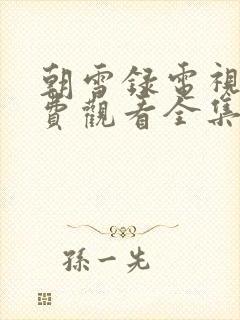 朝雪録電視
費觀看全集
孫一先